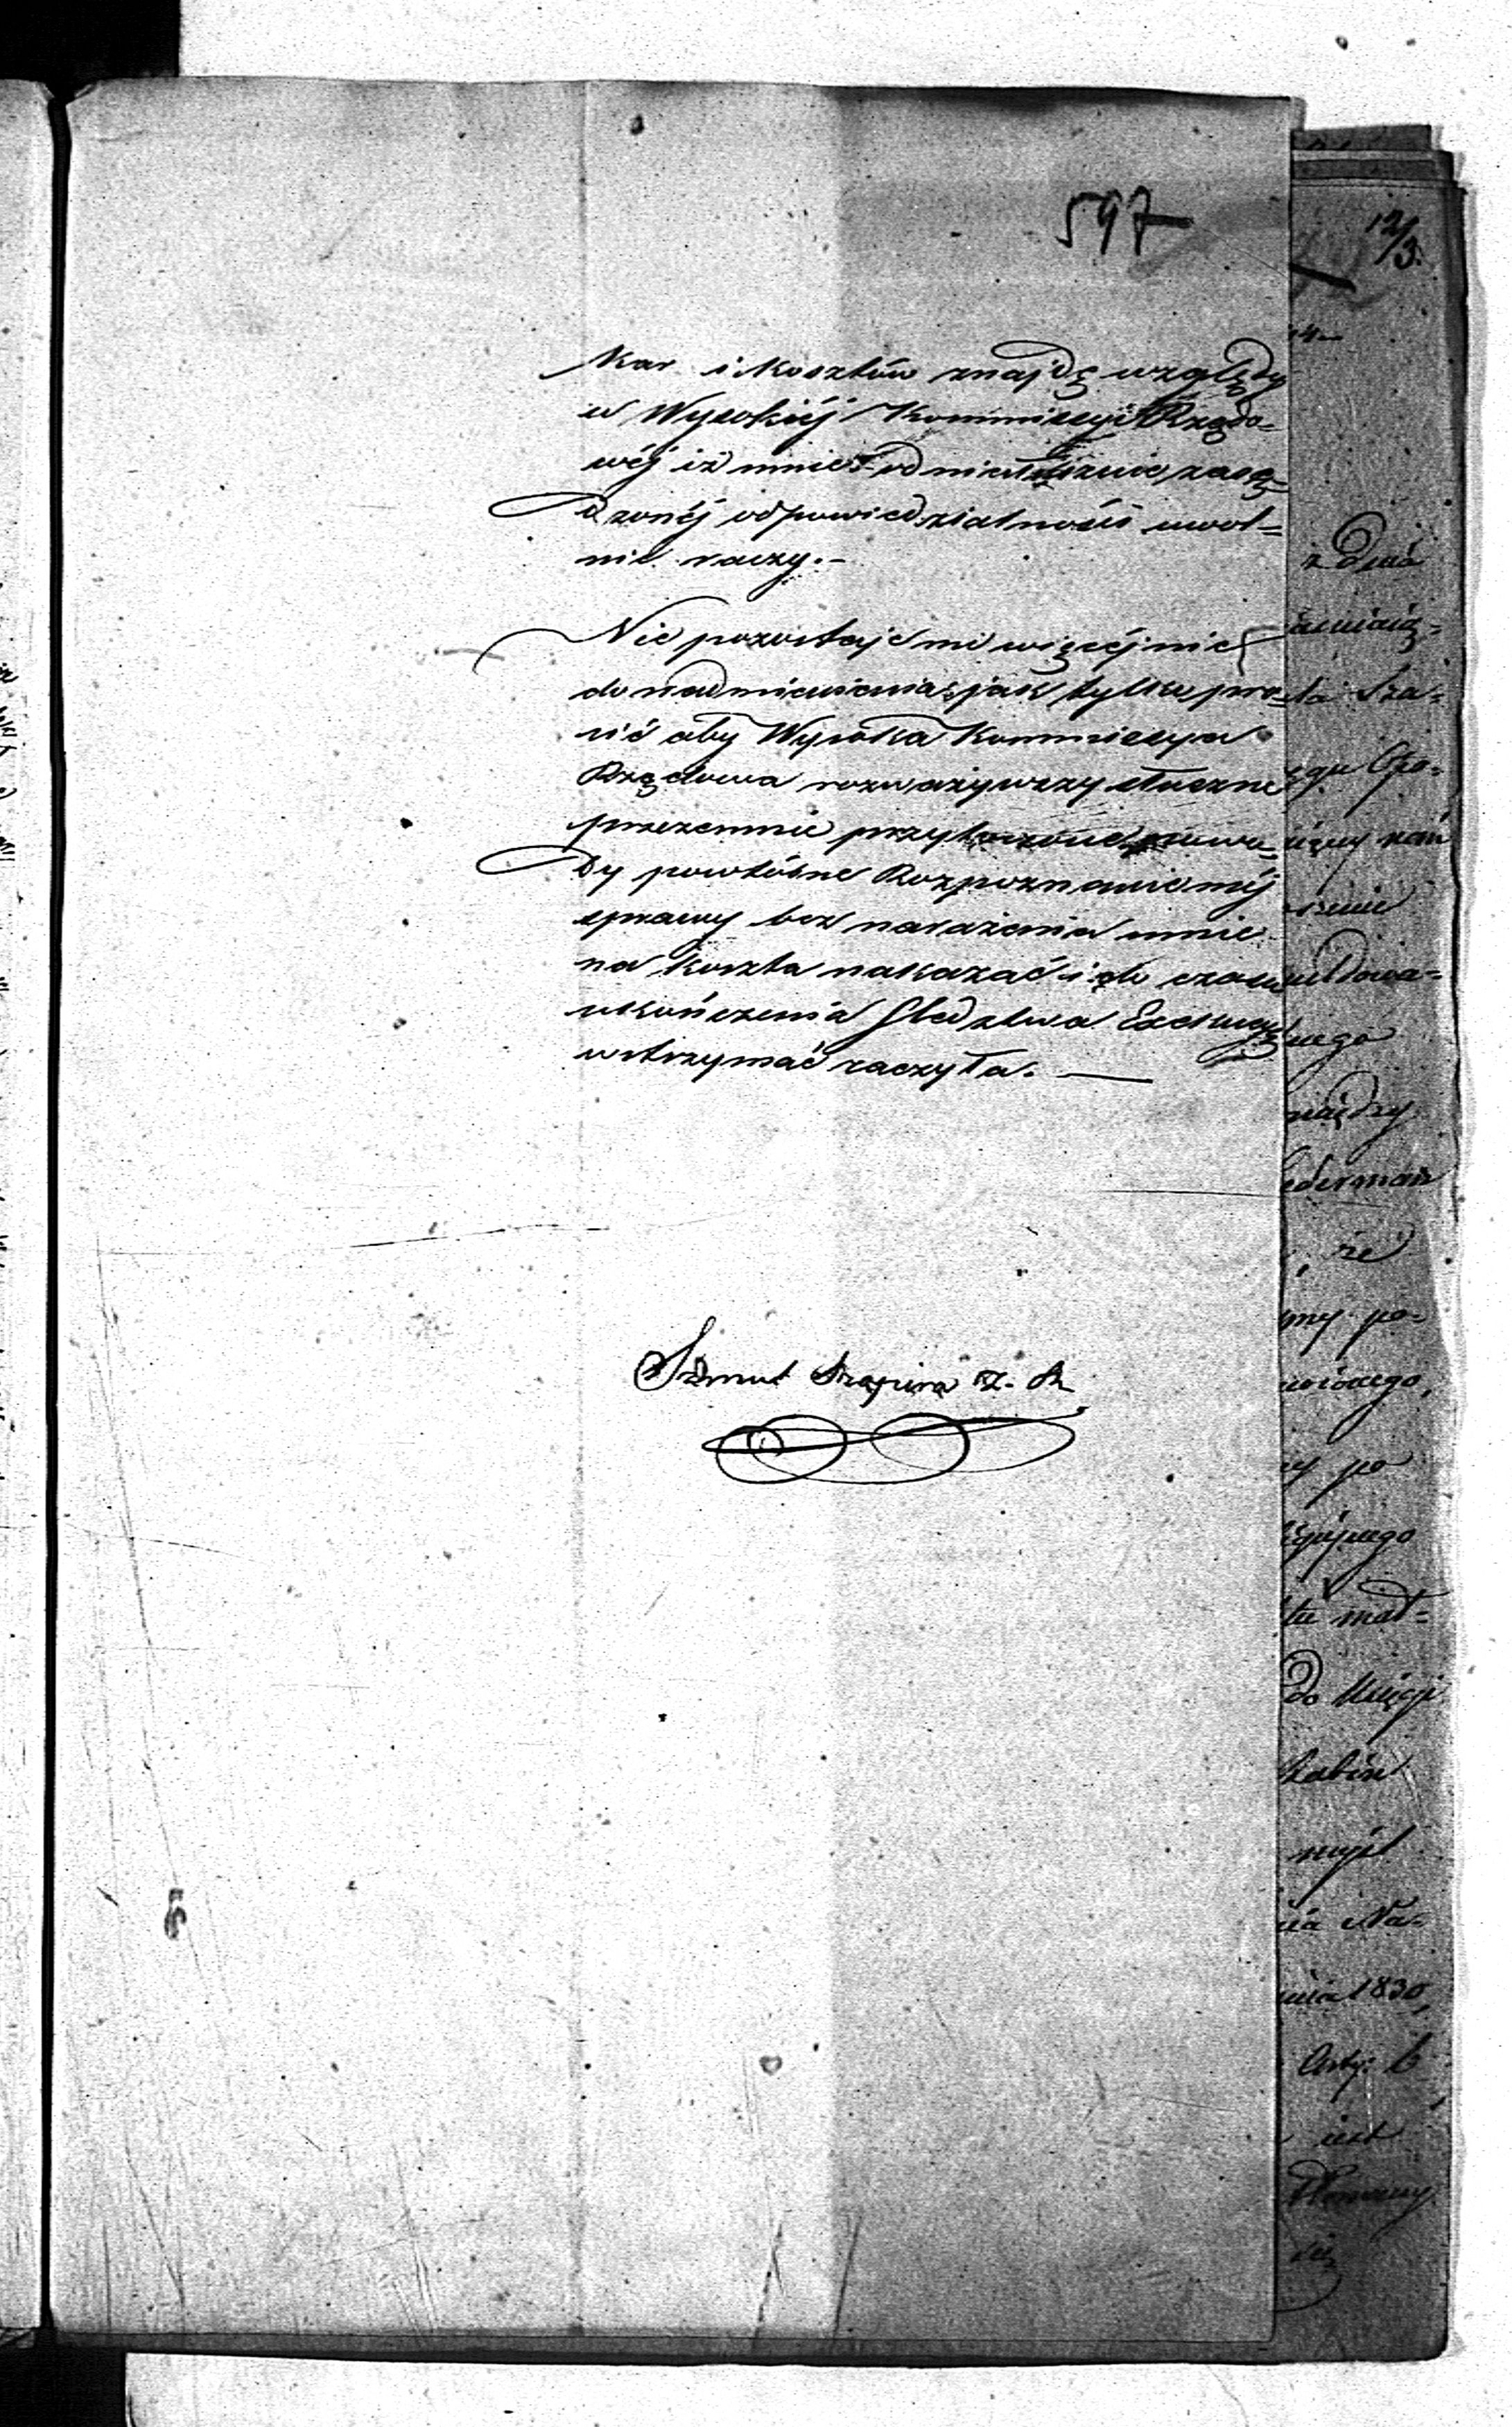 597
Kar i kosztów znajdę względy
w Wysokiéj Kommissyi Rządo=
wéj iż mnie od niesłusznie zasą=
dzonéj odpowiedzialności uwol=
nić raczy.-
Nie pozostaje mi więcéj nic
do nadmienienia jak tylko pro=
sić aby Wysoka Kommissya
Rządowa rozważywszy słuszne
przezemnie przytoczone powo=
dy powtórne Rozpoznanie méj
sprawy bez narażenia mnie
na koszta nakazać i do czasu
ukończenia Śledztwa Exekucyę
wstrzymać raczyła. —
Szmul Szapira Z. R.
12/3.
z dnia
ta Sza=
nego
między
ederman
, że
my po=
y po
tu mał=
do Księgi
Rabin
myśl
nia Na=
nia 1830,
Arty: 6
jest
się